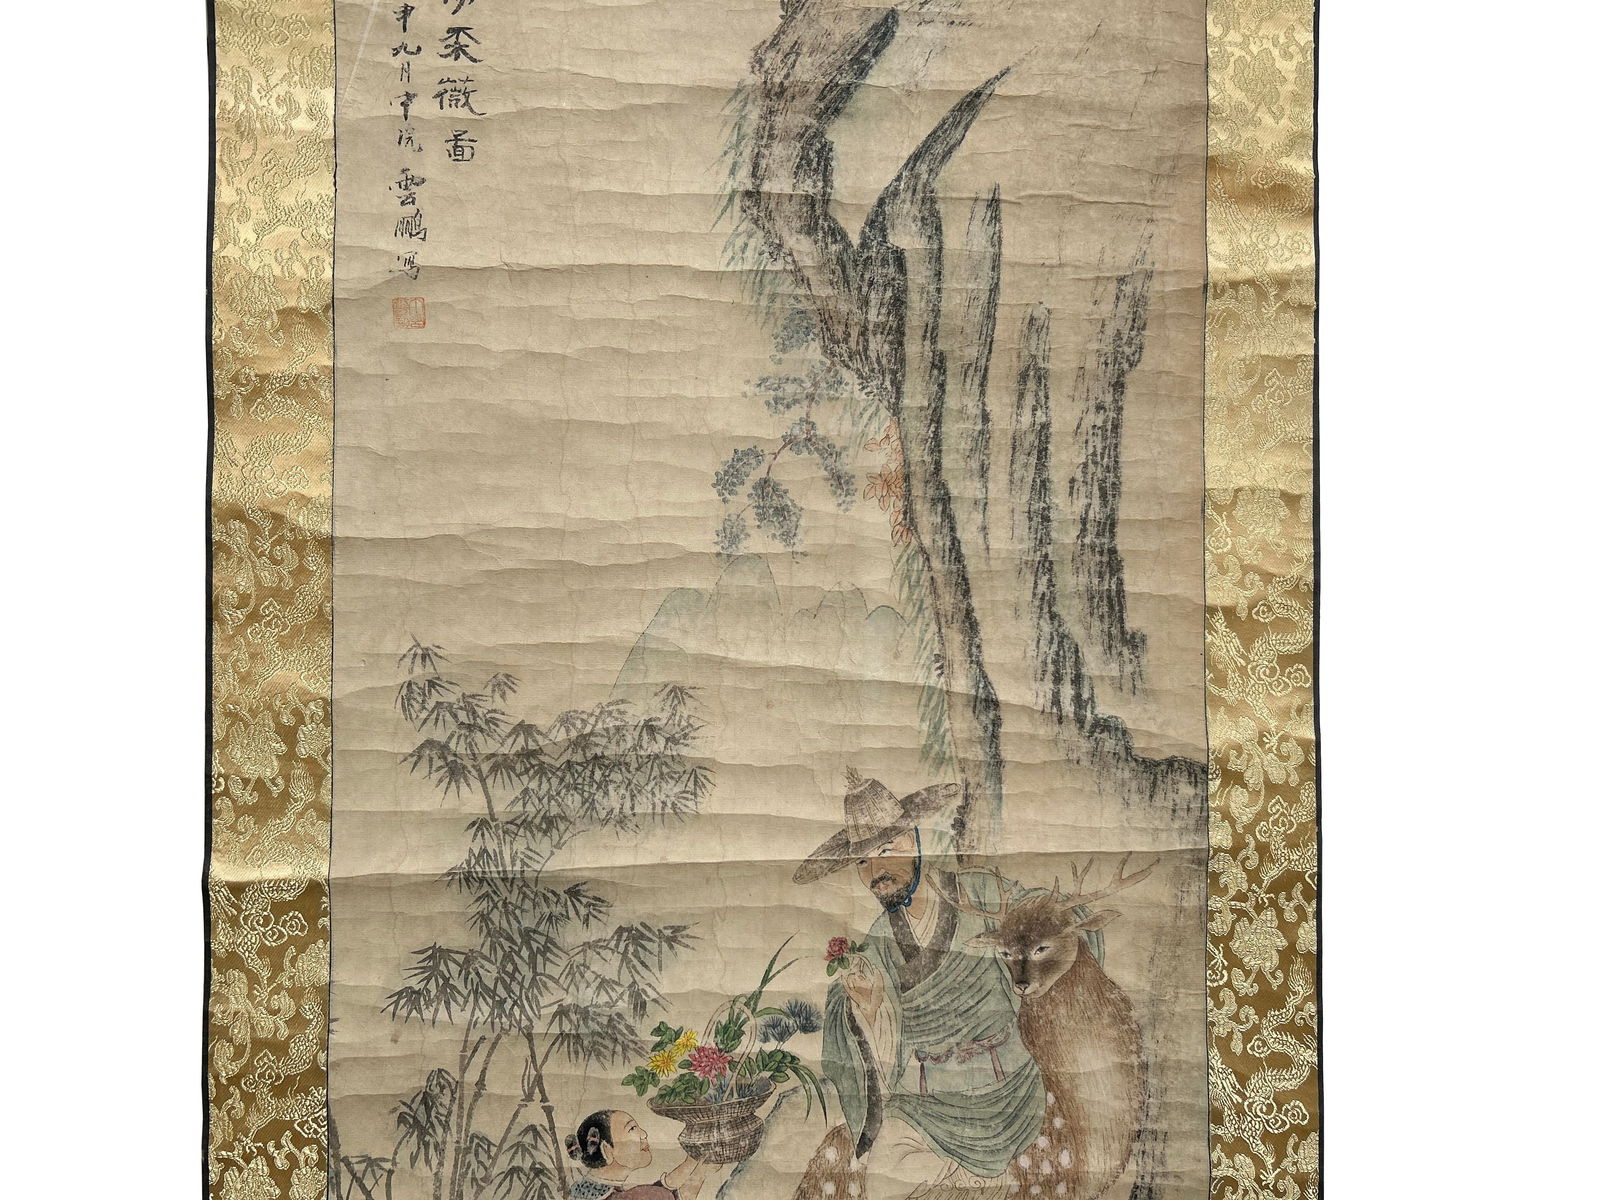 采薇啚
申九月中浣雲鵬寫